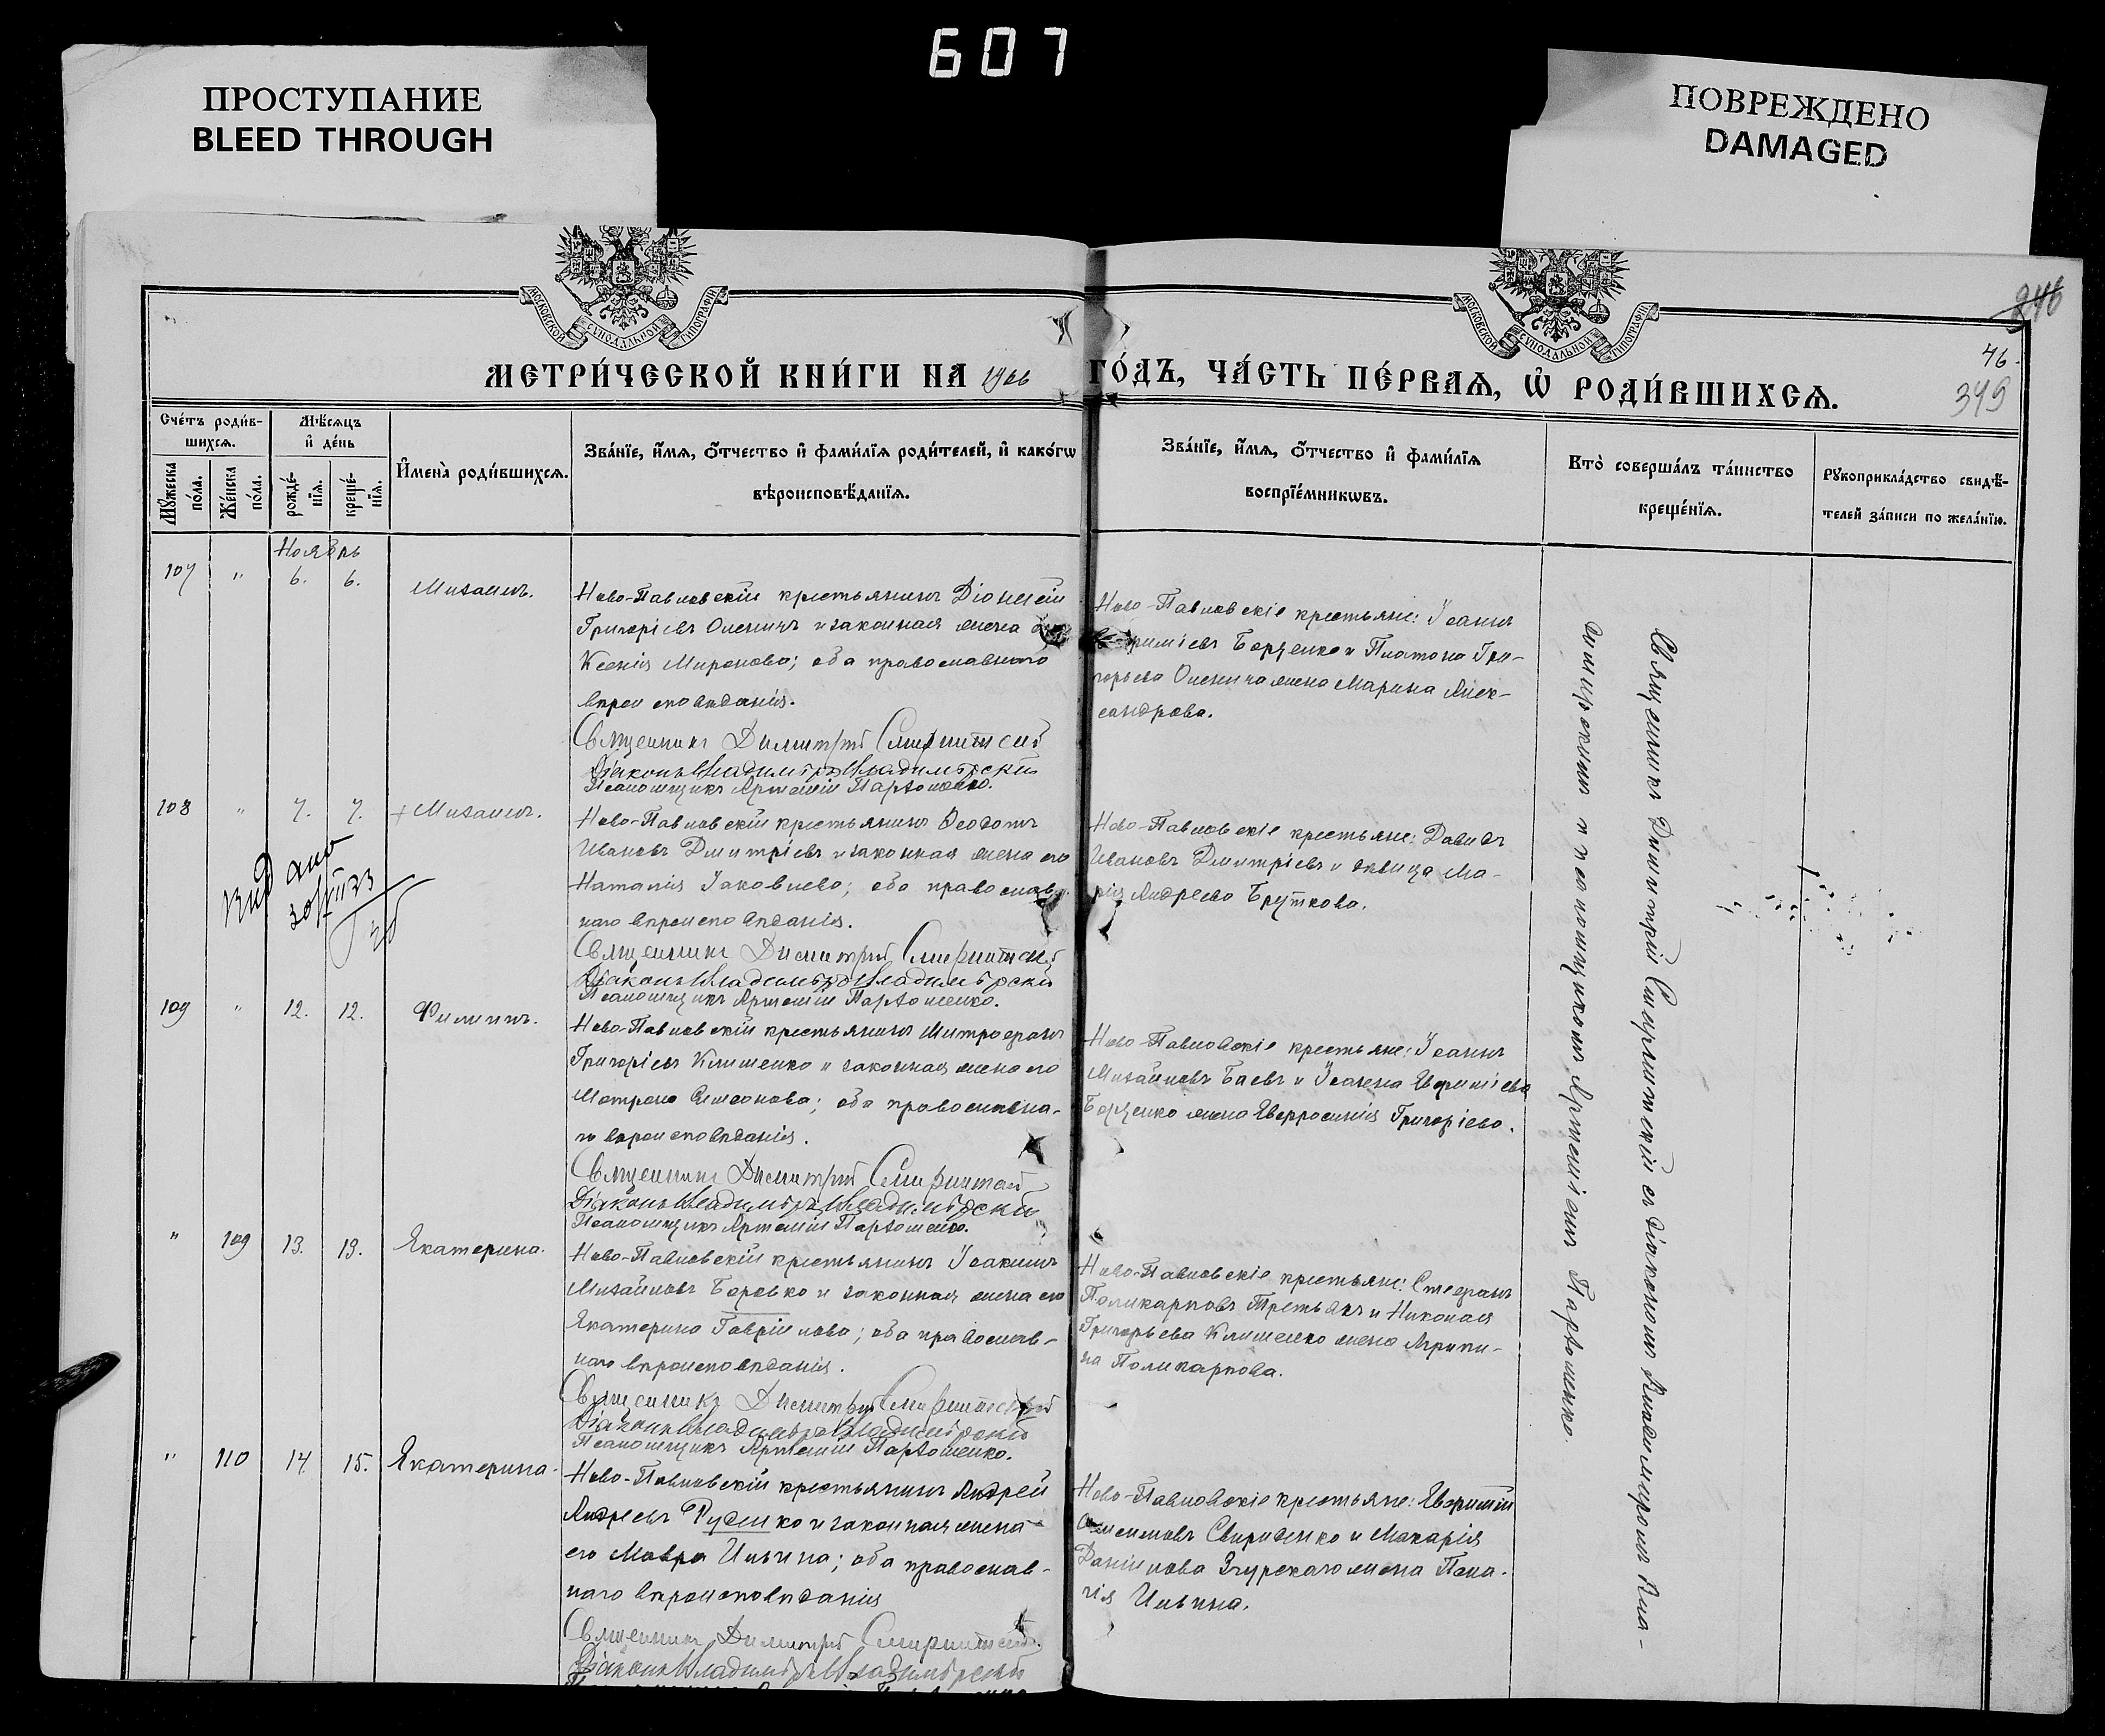 607
ПРОСТУПАНИЕ
BLEED THROUGH
ПОВРЕЖДЕНО
DAMAGED
МОСКОВСКОЙ СѴНОДАЛЬНОЙ ТИПОГРАФІИ
МОСКОВСКОЙ СѴНОДАЛЬНОЙ ТИПОГРАФІИ
246
46.
349
МЕТРИ́ЧЕСКОЙ КНИ́ГИ НА 1906 ГО́ДЪ, ЧА́СТЬ ПЕ́РВАѦ, Ѡ҆ РОДИ́ВШИХСѦ.
Сче́тъ роди́в-
шихсѧ.
Мѣ́сѧцъ
и҆ де́нь
Мꙋ́жеска по́ла.
Же́нска по́ла.
рожде́-нїѧ.
креще́-нїѧ.
И҆мена̀ роди́вшихсѧ.
Зва́нїе, и҆́мѧ, ѻ҆́тчество и҆ фами́лїѧ роди́телей, и҆ како́гѡ
вѣроисповѣ́данїѧ.
Зва́нїе, и҆́мѧ, ѻ҆́тчество и҆ фами́лїѧ
воспрїе́мникѡвъ.
Кто̀ соверша́лъ та́инство
креще́нїѧ.
Рꙋкоприкла́дство свидѣ́-
телей за́писи по жела́нїю.
Ноябрь
107 " 6. 6. Михаилъ.
Ново-Павловскій крестьянинъ Діонисій
Григорьевъ Оленичъ и законная жена
Ксенія Миронова; оба православнаго
вѣроисповѣданія.
Священникъ Димитрій
Діаконъ Владиміръ Владимірскій
Псаломщикъ Артемій Пархоменко.
Ново-Павловскіе крестьяне: Іоаннъ
Борзенко и Платона Гри-
горьева Оленича жена Марина Алек-
сандрова.
108 " 7. 7. + Михаилъ.
Ново-Павловскій крестьянинъ Ѳеодотъ
Ивановъ Дмитріевъ и законная жена его
Наталія Іаковлева; оба православ-
наго вѣроисповѣданія.
Священникъ Димитрій
Діаконъ Владиміръ Владимірскій
Псаломщикъ Артемій Пархоменко.
Ново-Павловскіе крестьяне: Давидъ
Ивановъ Дмитріевъ и дѣвица Ма-
рія Андреева Бруткова.
109 " 12. 12. Филиппъ.
Ново-Павловскій крестьянинъ Митрофанъ
Григорьевъ Клименко и законная жена его
Матрона Симеонова; оба православна-
го вѣроисповѣданія.
Священникъ Димитрій
Діаконъ Владиміръ Владимірскій
Псаломщикъ Артемій Пархоменко.
Ново-Павловскіе крестьяне: Іоаннъ
Михайловъ Баевъ и Іоанна Евфиміева
Борзенко жена Евфросинія Григорьева.
" 109 13. 13. Екатерина.
Ново-Павловскій крестьянинъ Іоакимъ
Михайловъ Боровко и законная жена его
Екатерина Гавріилова; оба православ-
наго вѣроисповѣданія.
Священникъ Димитрій
Діаконъ Владиміръ Владимірскій
Псаломщикъ Артемій Пархоменко.
Ново-Павловскіе крестьяне: Стефанъ
Поликарповъ Третьякъ и Николая
Григорьева Клименко жена Агрипи-
на Поликарпова.
" 110 14. 15. Екатерина.
Ново-Павловскій крестьянинъ Андрей
Андреевъ Руденко и законная жена
его Мавра Ильина; оба православ-
наго вѣроисповѣданія
Священникъ Димитрій
Діаконъ Владиміръ Владимірскій
Ново-Павловскіе крестьяне: Евфимій
Свириденко и Макарія
Даніилова Згурскаго жена Пела-
гія Ильина.
Священникъ Димитрій съ діакономъ Владиміромъ Вла-
димірскимъ и псаломщикомъ Артеміемъ Пархоменко.